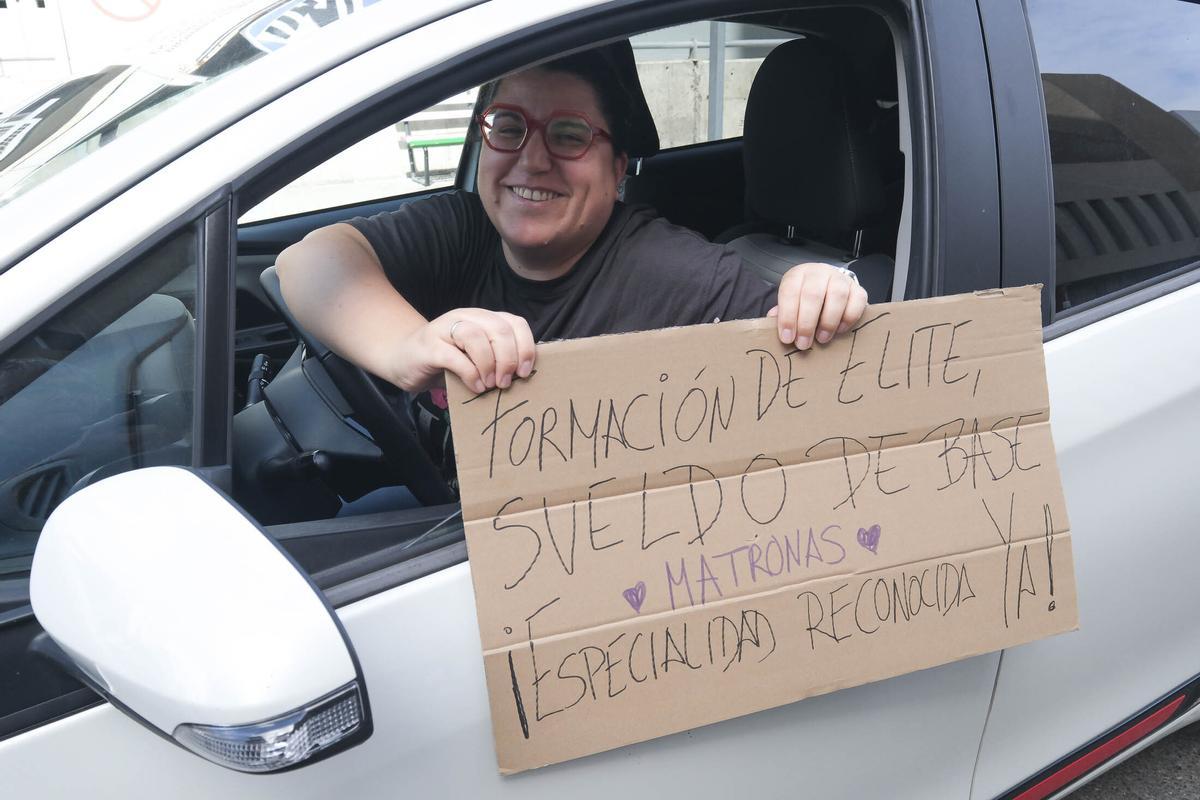 FORMACIÓN DE ELITE,
SUELDO DE BASE
♥ MATRONAS ♥
¡ESPECIALIDAD RECONOCIDA YA!